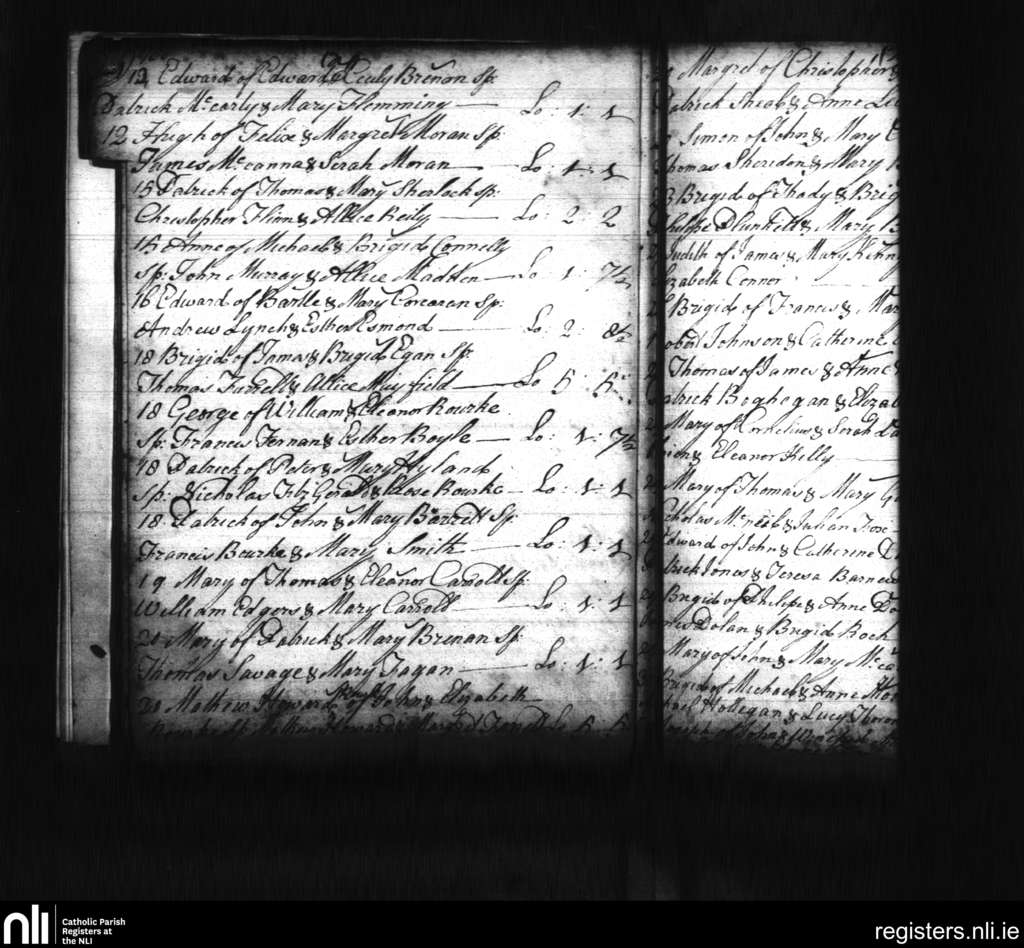 12 Edward of Edward & Cicily Brenan Sp:
Patrick McCarty & Mary Flemming — Lo: 1: 1
12 Hugh of Felix & Margret Moran Sp:
James McCanna & Serah Moran — Lo: 1: 1
15 Patrick of Thomas & Mary Sherlock Sp:
Christopher Flinn & Allice Reily — Lo: 2: 2
15 Anne of Michael & Brigid Connelly
Sp: John Murray & Allice Madden — Lo: 1: 7½
16 Edward of Bartle & Mary Corcoran Sp:
Andrew Lynch & Esther Esmond — Lo: 2: 8½
18 Brigid of James & Brigid Egan Sp:
Thomas Farrell & Allice Mayfield — Lo 5: 5
18 George of William & Eleanor Rourke
Sp: Francis Fernan & Esther Boyle — Lo: 1: 7½
18 Patrick of Peter & Mary Hyland
Sp: Nicholas Fitz Gerald & Rose Rourke — Lo: 1: 1
18 Patrick of John & Mary Barrett Sp:
Francis Bourke & Mary Smith — Lo: 1: 1
19 Mary of Thomas & Eleanor Carroll Sp:
William Edgers & Mary Carroll — Lo: 1: 1
21 Mary of Patrick & Mary Brenan Sp:
Thomas Savage & Mary Fagan — Lo: 1: 1
20 Mathew Howard of John & Elizabeth
Rourke Sp: Howard & Lo 5 5
Margret of Christopher &
Patrick Sheal & Anne
Simon of John & Mary
Thomas Sheridon & Mary
Brigid of Thady & Brig
Philipe Plunkett & Mary
Judith of James & Mary
Elizabeth Conner
Brigid of Francis & Mar
Robert Johnson & Catherine
Thomas of James & Anne
Patrick Boghegan & Elizab
Mary of Cornelius & Serah
& Eleanor Kelly —
Mary of Thomas & Mary
Nicholas McNeib & Julian
Edward of John & Catherine
Patrick Jones & Teresa Barne
Brigid of Philipe & Anne Do
Dolan & Brigid Roch
Mary of John & Mary McCa
Brigid of Michael & Anne
Hollegan & Lucy
Joseph of John &
nli
Catholic Parish
Registers at
the NLI
registers.nli.ie